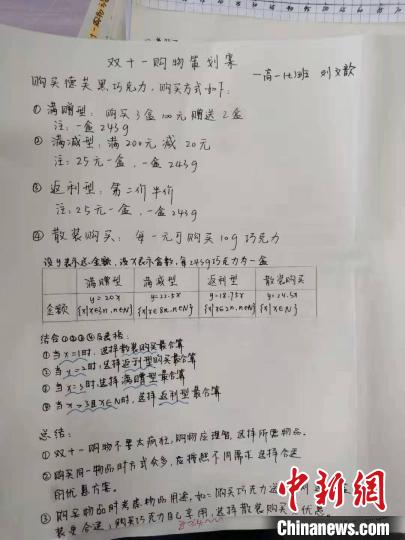 双十一购物策划案
一高一(七)班 刘文歆
购买德芙黑巧克力,购买方式如下:
① 满赠型:购买3盒100元赠送2盒
注:一盒243g
② 满减型:满200元减20元
注:25元一盒,一盒243g
③ 返利型:第二份半价
注:25元一盒,一盒243g
④ 散装购买:每一元可购买10g巧克力
设y表示总金额,设x表示盒数,每243g巧克力为一盒
满赠型 满减型 返利型 散装购买
金额 y=20x y=22.5x y=18.75x y=24.3x
{x|x∈5n,n∈N} {x|x∈8n,n∈N} {x|x∈2n,n∈N} {x|x∈N}
结合①②③④及表格:
①当x=1时,选择散装购买最合算
②当x=2时,选择返利型购买最合算
③当x=5时,选择满赠型最合算
④当x>3且x∈N时,选择返利型最合算
总结:
① 双十一购物不要太疯狂,购物应理智,选择所需物品。
② 购买同一物品时方式众多,应按照不同需求选择合适
的优惠方案。
③ 购买物品时考虑物品用途,如:购买巧克力送
装更合适;购买巧克力自己享用,选择散装购买 优惠。
中新网